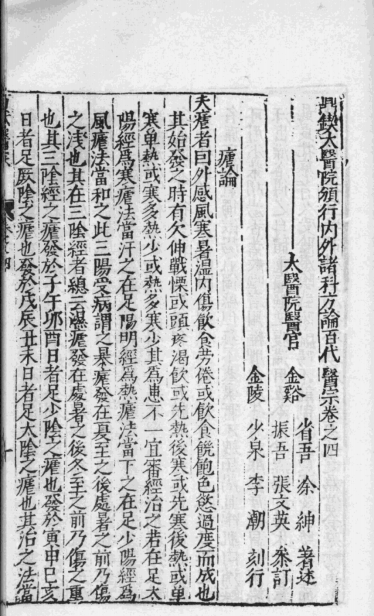 鼎鍥太醫院頒行內外諸科方論百代醫宗卷之四
太醫院醫官 金谿 省吾 余紳 著述
振吾 張文英 叅訂
金陵 少泉 李潮 刻行
瘧論
夫瘧者曰外感風寒暑濕內傷飲食勞倦或飲食饑飽色慾過度而成也
其始發之時有欠伸戰慄或頭疼渴飲或先熱後寒或先寒後熱或單
寒單熱或寒多熱少或熱多寒少其為患不一宜審經治之若在足太
陽經為寒瘧法當汗之在足陽明經為熱瘧法當下之在足少陽經為
風瘧法當和之此三陽受病謂之暴瘧發在夏至之後處暑之前乃傷
之淺也其在三陰經者總謂濕瘧發在處暑之後冬至之前乃傷之重
也其三陰經之瘧發於子午卯酉日者足少陰之瘧也發於寅申巳亥
日者足厥陰之瘧也發於戊辰丑未日者足太陰之瘧也其治之法當